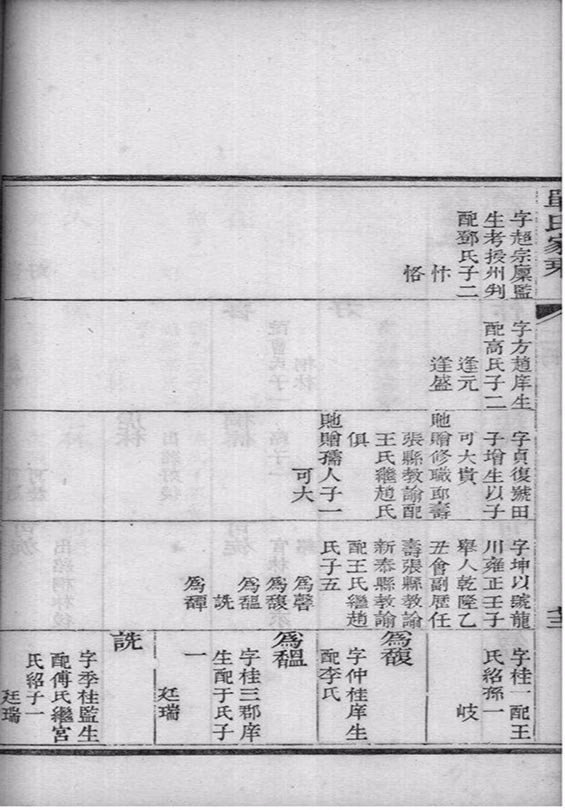 單氏家乘
字超宗廩監
生考授州判
配鄧氏子二
忭
恪
字方趙庠生
配高氏子二
逢元
逢盛
字貞復號田
子增生以子
可大貴
貤贈修職郎壽
張縣教諭配
王氏繼趙氏
俱
貤贈孺人子一
可大
字坤以號龍
川雍正壬子
舉人乾隆乙
丑會副歷任
壽張縣教諭
新泰縣教諭
配王氏繼趙
氏子五
爲馨
爲馥
爲馧
詵
爲
字桂一配王
氏紹孫一
岐
爲馥
字仲桂庠生
配李氏
爲馧
字桂三郡庠
生配于氏子
一
廷瑞
詵
字季桂監生
配傅氏繼宮
氏紹子一
廷瑞